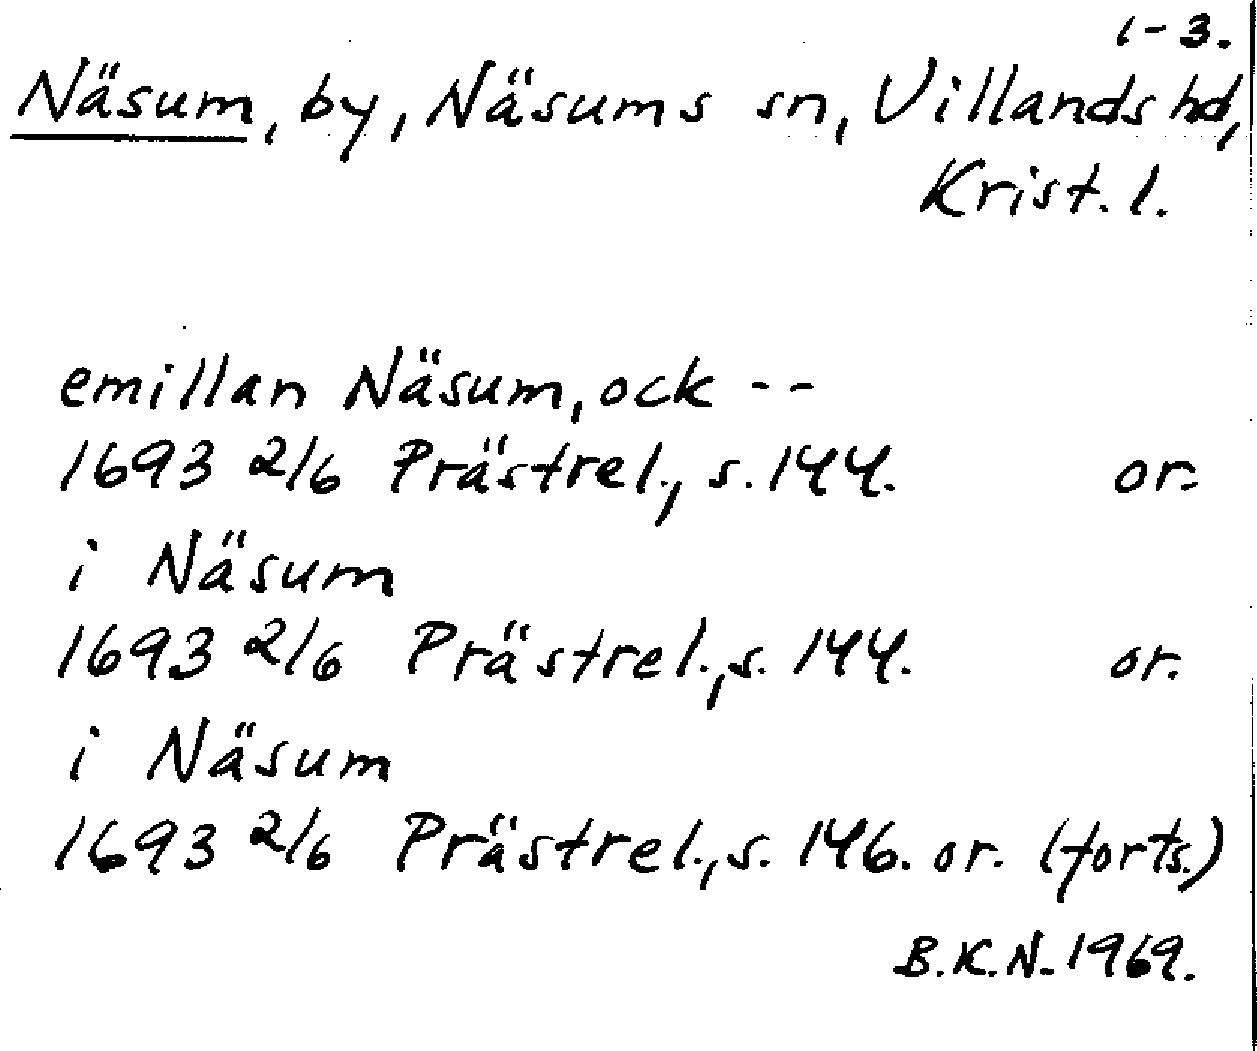 1-3.
Näsum, by, Näsums sn, Villands hd,
Krist. l.
emillan Näsum, ock --
1693 2/6 Prästrel., s. 144. or.
i Näsum
1693 2/6 Prästrel., s. 144. or.
i Näsum
1693 2/6 Prästrel., s. 146. or. (forts.)
B.K.N. 1969.